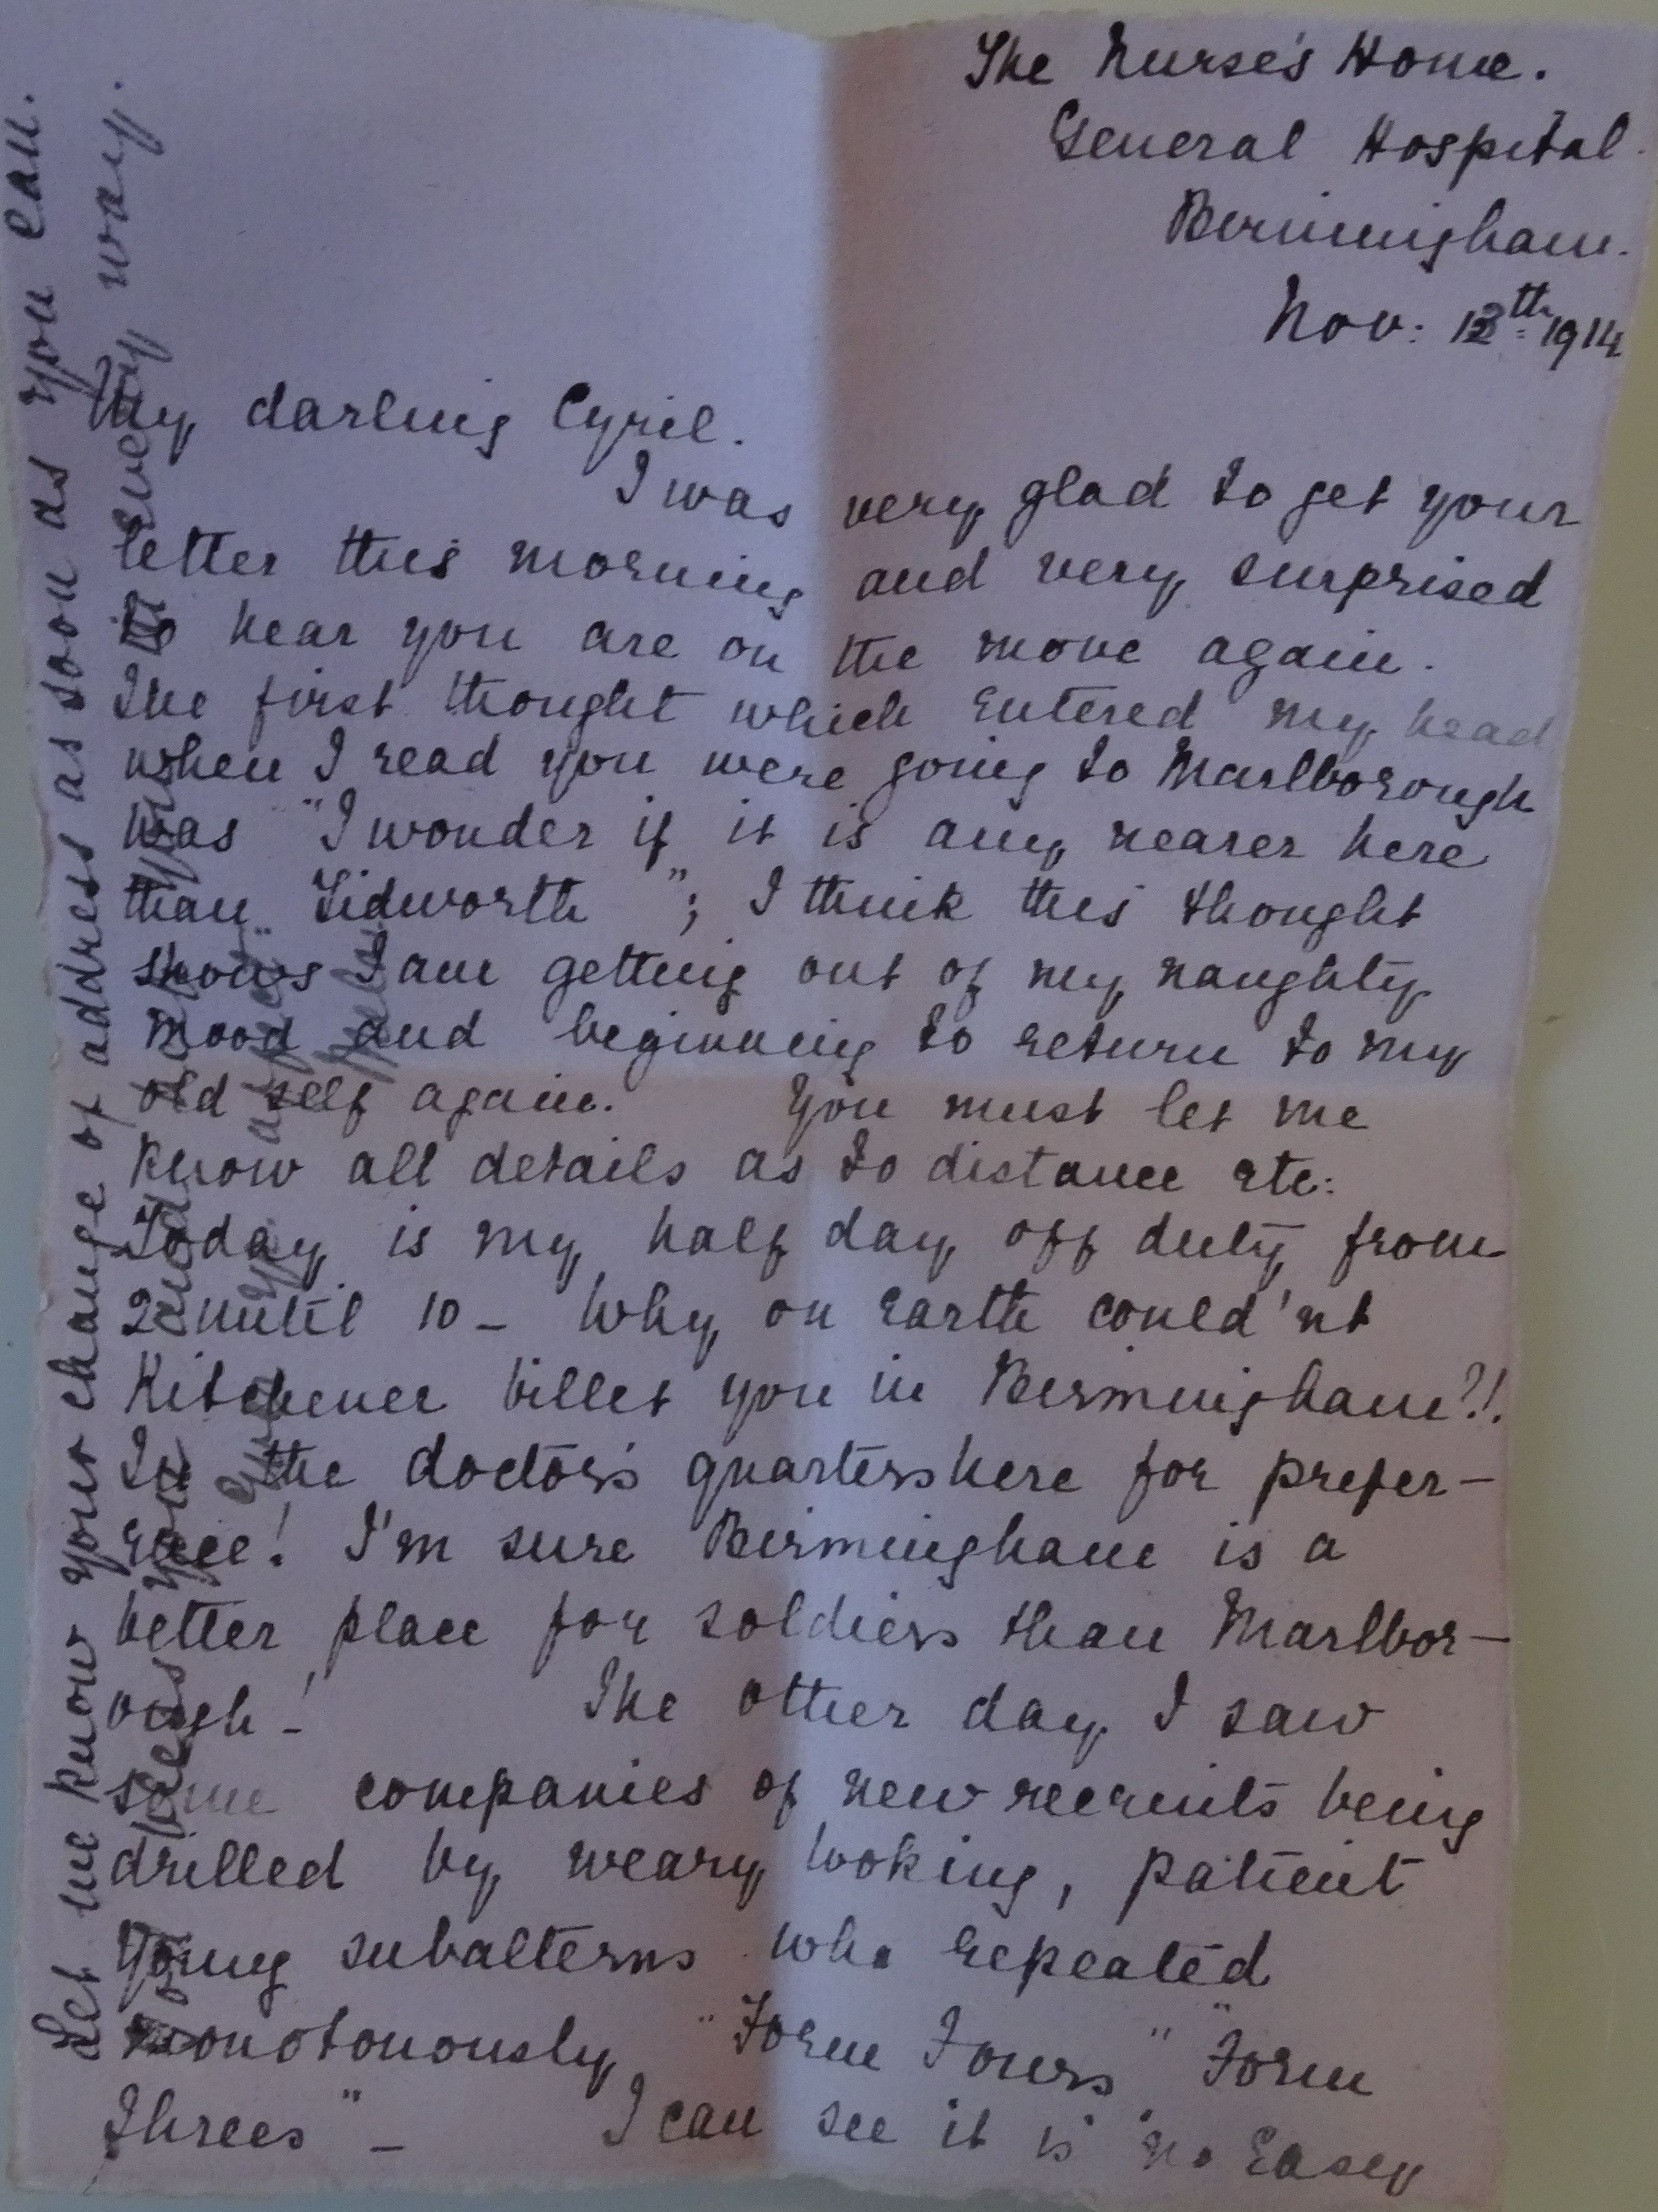 The Nurse's Home.
General Hospital.
Birmingham.
Nov: 12th 1914
My darling Cyril.
I was very glad to get your
letter this morning and very surprised
to hear you are on the move again.
The first thought which entered my head
when I read you were going to Marlborough
was "I wonder if it is any nearer here
than Tidworth"; I think this thought
shows I am getting out of my naughty
mood and beginning to return to my
old self again. You must let me
know all details as to distance etc:
Today is my half day off duty from
2 until 10 - Why on Earth could'nt
Kitchener billet you in Birmingham?!
In the doctor's quarters here for prefer-
ence! I'm sure Birmingham is a
better place for soldiers than Marlbor-
ough! - The other day I saw
some companies of new recruits being
drilled by weary looking, patient
young subalterns who repeated
monotonously "Form Fours" "Form
Threes" - I can see it is no Easy
Let me know your change of address as soon as you can.
bless you and you in Every way.
your